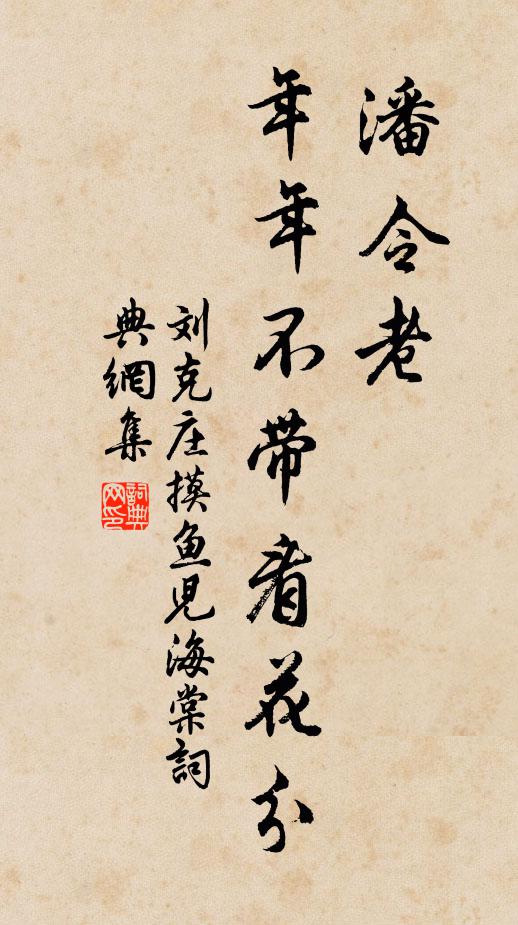 潘令老
年年不带看花分
刘克庄摸鱼児海棠詞
典網集
詞典網印